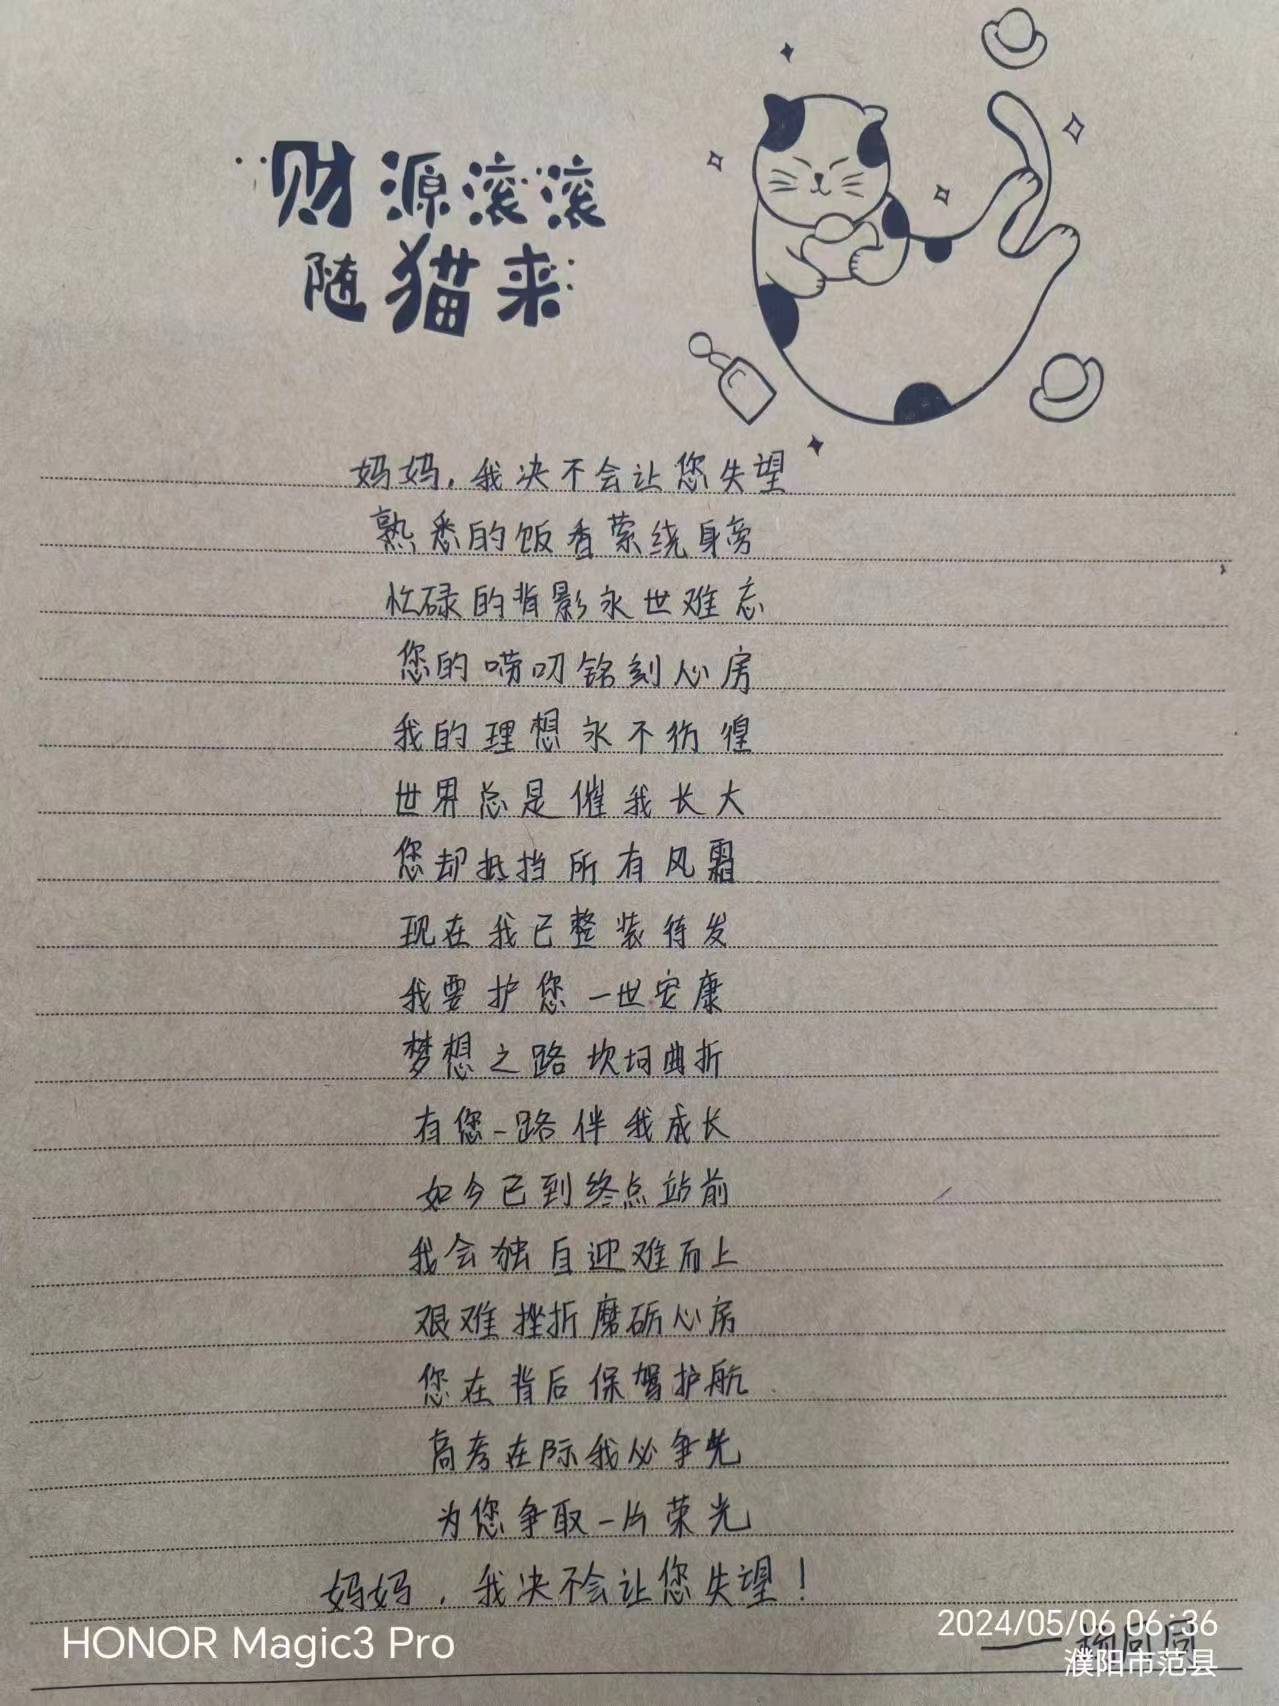 财源滚滚
随猫来
妈妈，我决不会让您失望
熟悉的饭香萦绕身旁
忙碌的背影永世难忘
您的唠叨铭刻心房
我的理想永不彷徨
世界总是催我长大
您却抵挡所有风霜
现在我已整装待发
我要护您一世安康
梦想之路坎坷曲折
有您一路伴我成长
如今已到终点站前
我会独自迎难而上
艰难挫折磨砺心房
您在背后保驾护航
高考在际我必争先
为您争取一片荣光
妈妈，我决不会让您失望！
——同同
HONOR Magic3 Pro
2024/05/06 06:36
濮阳市范县